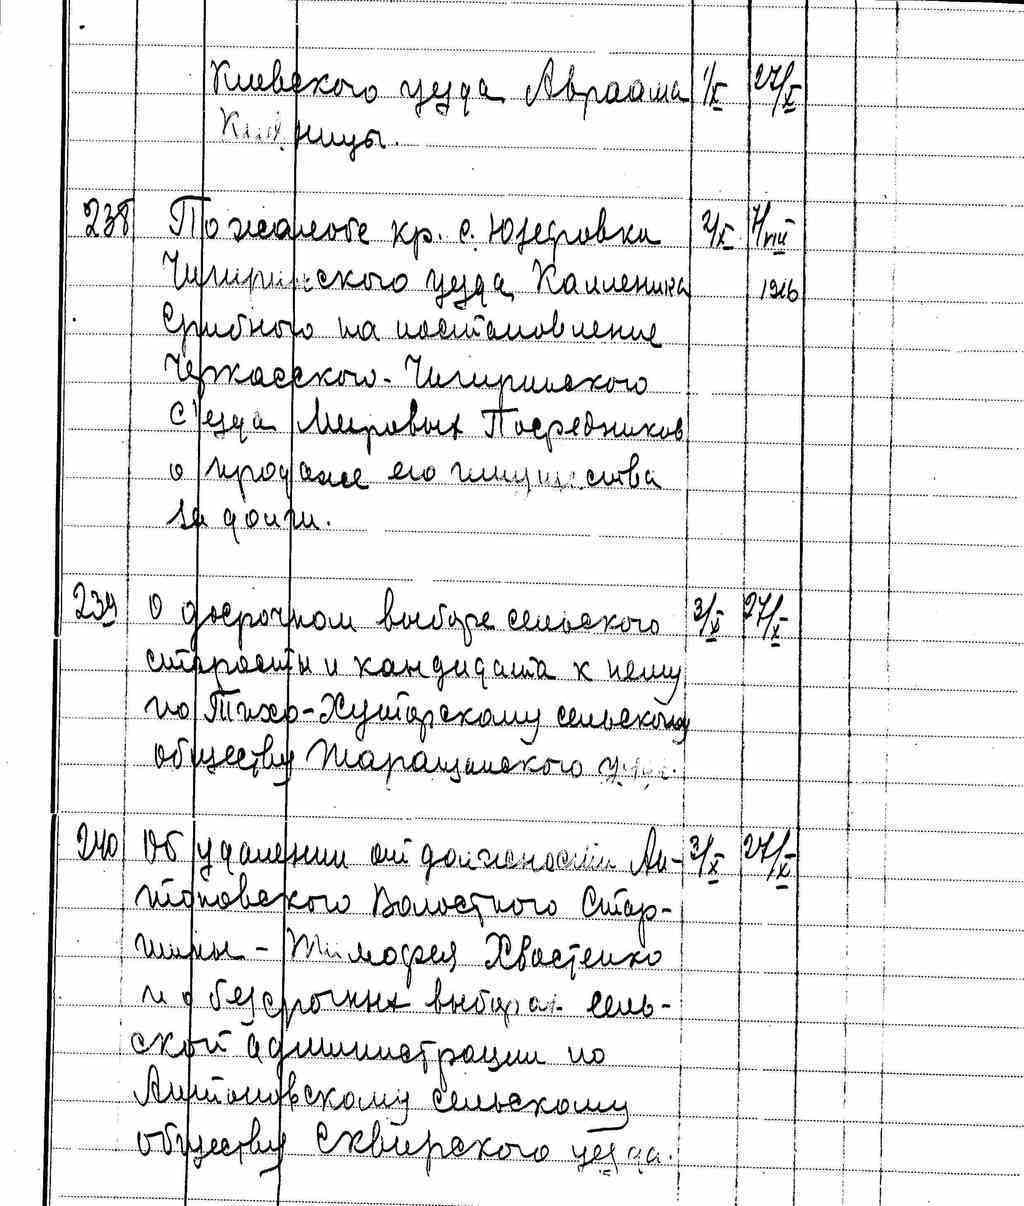 Киевского уезда Авраама 1/X 27/X
ницы.
238 По жалобе кр. с. Юзефовки 2/X 7/VIII
Чигиринского уезда Каленика 1916
Срибного на постановление
Черкасского-Чигиринского
с'езда Мировых Посредников
о продаже его имущества
за долги.
239 О досрочном выборе сельского 3/X 27/X
старосты и кандидата к нему
по Тихо-Хуторскому сельскому
обществу Таращанского уезда.
240 Об удалении от должности Ан- 3/X 27/X
тоновского Волостного Стар-
шины - Тимофея Хвостенко
и о безсрочных выборах сель-
ской администрации по
Антоновскому сельскому
обществу Сквирского уезда.